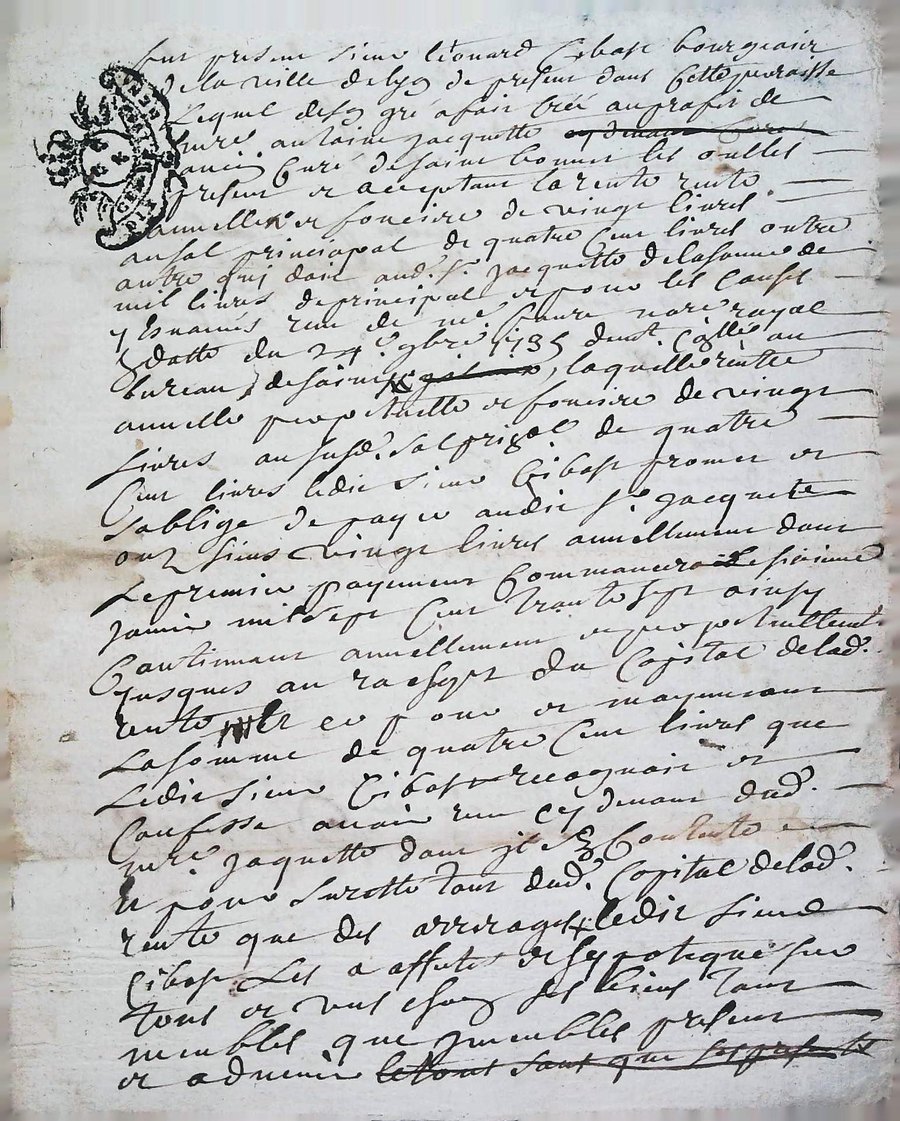 fut présent sieur léonard Cibost bourgeois
de la ville de present dans Cette parroisse
Lequel de son gré a fait Créé au profit de
mre. antoine jacquette cy devant curé
ancien Curé de saint bonnet les oulles
present et acceptant la rente rente
annuelle et fonciere de vingt livres
au sol principal de quatre Cent livres outre
autre qui doit aud. sr. jacquette de la somme de
mil livres de principal et pour les Causes
y Esnoncés reçu de me. favre nore royal
Datte du 24e. 9bre 1735 deumt. Collé au
bureau de saint, laquelle rente
annuelle perpetuelle et fonciere de vingt
Livres au susd. sol prizal de quatre
Cent livres ledit sieur Cibost promet et
s'oblige de payer audit sr. jacquete
ou z siens vingt livres annuellement dont
Le premier payement Commancera Le sixieme
janvier mil sept Cent trante sept ainsy
Continuant annuellement et perpetuellemt.
jusques au rachapt du Capital de lad.
rente Et ce pour et moyennant
La somme de quatre Cent livres que
Ledit sieur Cibost recognoit et
Confesse avoir reçu cy devant dud.
mre. jaquette dont il se Contente
Et pour suretté tant dud. Capital de lad.
rente que des arrerages ledit sieur
Cibost Les a affutés et hypotequé sur
tous et uns chacuns ses biens tant
meubles que jmeubles present
et advenir le tout sans que